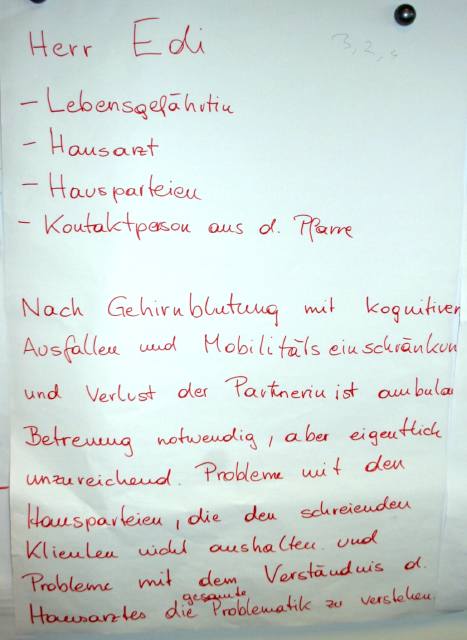 Herr Edi
3, 2, 4
- Lebensgefährtin
- Hausarzt
- Hausparteien
- Kontaktperson aus d. Pfarre
Nach Gehirnblutung mit kognitiven
Ausfällen und Mobilitätseinschränkun
und Verlust der Partnerin ist ambula
Betreuung notwendig, aber eigentlich
unzureichend. Probleme mit den
Hausparteien, die den schreienden
Klienten nicht aushalten und
Probleme mit dem Verständnis d.
Hausarztes die gesamte Problematik zu verstehen.